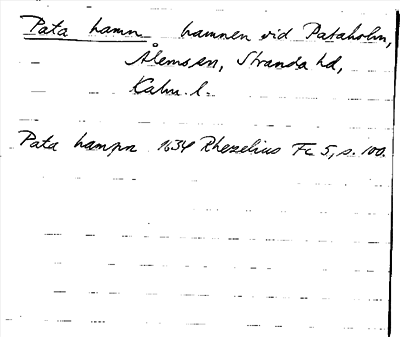 Pata hamn hamnen vid Pataholm,
Ålems sn, Stranda hd,
Kalm. l.
Pata hampn 1634 Rhezelius Fc 5, s. 100.